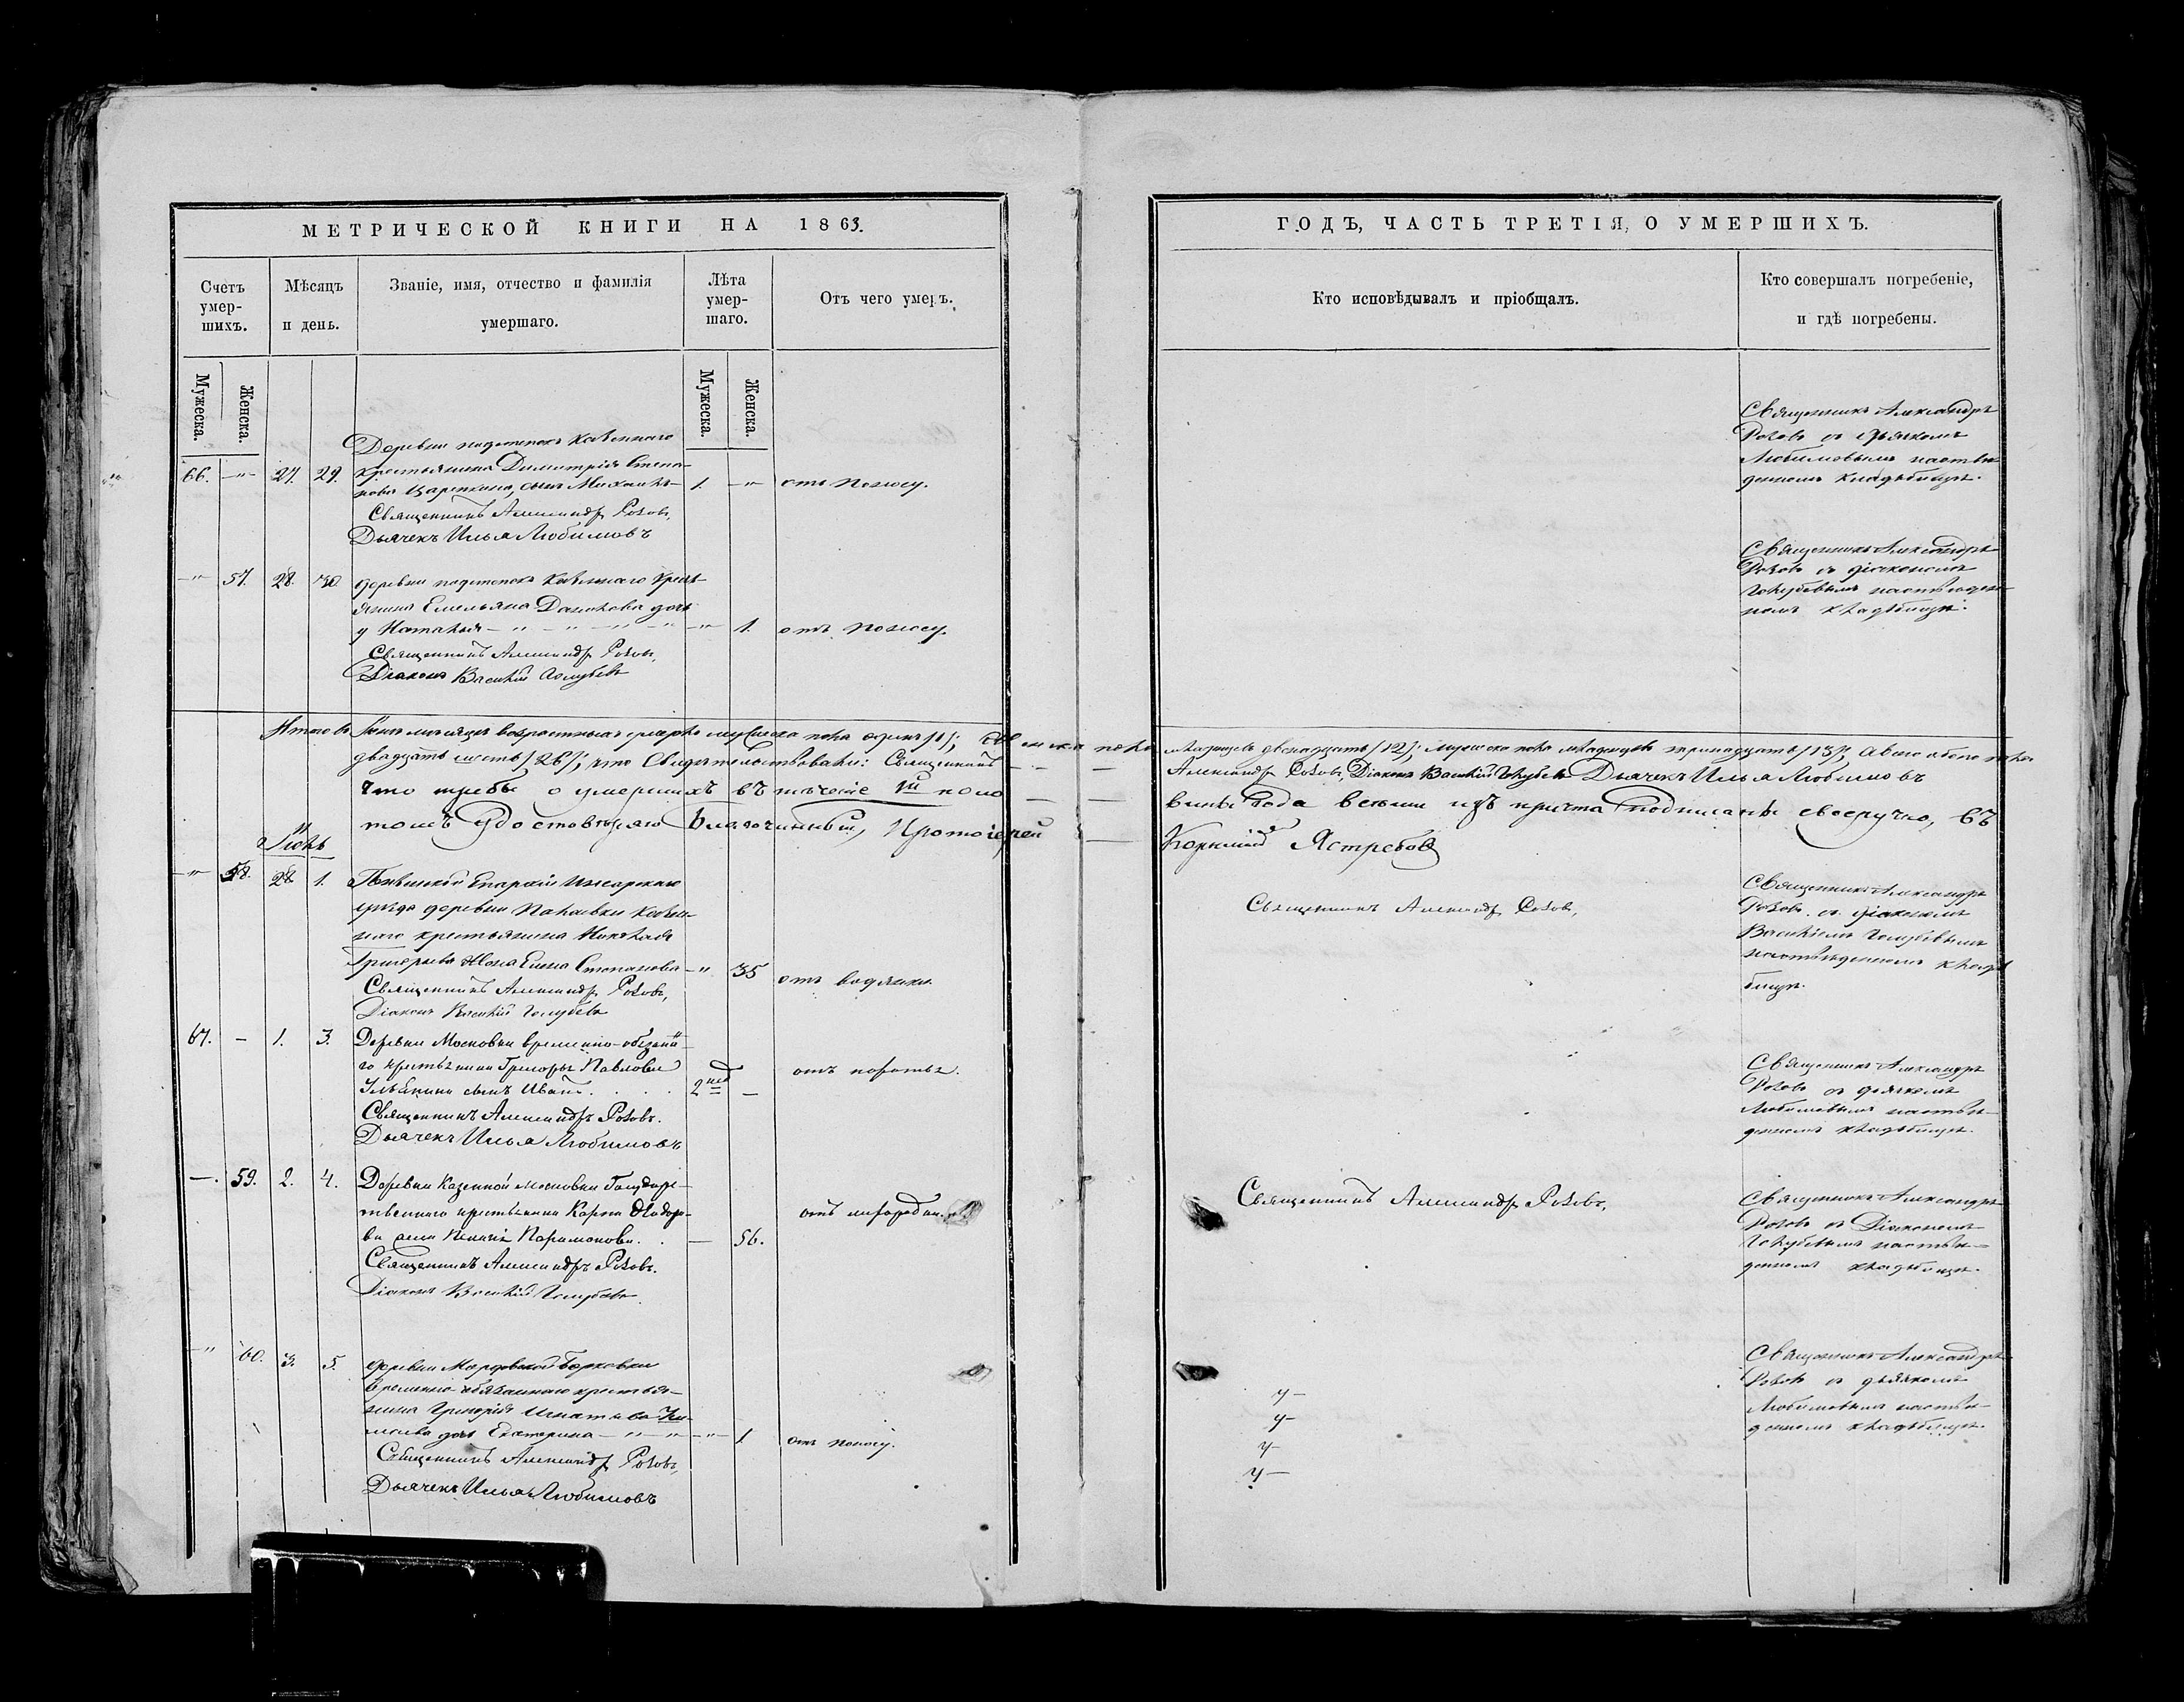 МЕТРИЧЕСКОЙ КНИГИ НА 1863.
Счетъ умер-шихъ.
Мѣсяцъ и день.
Званіе, имя, отчество и фамилія умершаго.
Лѣта умер-шаго.
Отъ чего умеръ.
Мужеска.
Женска.
Мужеска.
Женска.
Деревни казеннаго
66. —"— 27. 29. крестьянина Димитрія Степа-
нова сынъ Михаилъ 1. —"— отъ поносу.
Священникъ Александръ Розовъ,
Дьячекъ Илья Любимовъ
—"— 57. 28. 30. деревни казеннаго крест-
янина Емельяна дочь
Наталья —"— 1. отъ поносу.
Священникъ Александръ Розовъ,
Діаконъ Василій Голубевъ
Итого въ Іюнѣ мѣсяцѣ возрастныхъ умерло мужеска пола одинъ /1/;
двадцать шесть /26/; что свидѣтельствовали: Священникъ
что требы о умершихъ въ теченіе 1й поло
томъ удостовѣряю Благочинный, Протоіерей
Іюль
—"— 58. 28. 1. Пензенской Епархіи Инсарскаго
уѣзда деревни казен-
наго крестьянина Николая
Григорьева жена Елена Степанова —"— 35 отъ водянки.
Священникъ Александръ Розовъ,
Діаконъ Василій Голубевъ
67. — 1. 3. Деревни Московки временно-обязанна-
го крестьянина Григорья Павлова
сынъ Иванъ. 2 нед — отъ
Священникъ Александръ Розовъ.
Дьячекъ Илья Любимовъ
— 59. 2. 4. Деревни Казенной Московки Государс-
твеннаго крестьянина Карпа Ѳедоро-
ва Парамонова. — 56. отъ
Священникъ Александръ Розовъ.
Діаконъ Василій Голубевъ
—"— 60. 3. 5. деревни Мордовской
временно-обязаннаго крестья-
нина Григорія Игнатьева
дочь Екатерина —"— 1 отъ поносу.
Священникъ Александръ Розовъ,
Дьячекъ Илья Любимовъ
ГОДЪ, ЧАСТЬ ТРЕТІЯ, О УМЕРШИХЪ.
Кто исповѣдывалъ и пріобщалъ.
Кто совершалъ погребеніе, и гдѣ погребены.
Священникъ Александръ
Розовъ съ дьячкомъ
Любимовымъ на отве-
денномъ кладбищѣ.
Священникъ Александръ
Розовъ съ діакономъ
Голубевымъ на отведен-
номъ кладбищѣ.
младенцевъ двенадцать /12/; мужеска пола младенцевъ тринадцать /13/, а всего обоего пола
Александръ Розовъ, Діаконъ Василій Голубевъ Дьячекъ Илья Любимовъ
вины года всѣми изъ причта подписаны своеручно, въ
Корнилій Ястребовъ
Священникъ Александръ Розовъ,
Священникъ Александръ
Розовъ съ діакономъ
Василіемъ Голубевымъ
на отведенномъ клад-
бищѣ.
Священникъ Александръ
Розовъ съ дьячкомъ
Любимовымъ на отве-
денномъ кладбищѣ.
Священникъ Александръ Розовъ,
Священникъ Александръ
Розовъ съ Діакономъ
Голубевымъ на отве-
денномъ кладбищѣ.
Священникъ Александръ
Розовъ съ дьячкомъ
Любимовымъ на отве-
денномъ кладбищѣ.
у—
у—
у—
у—